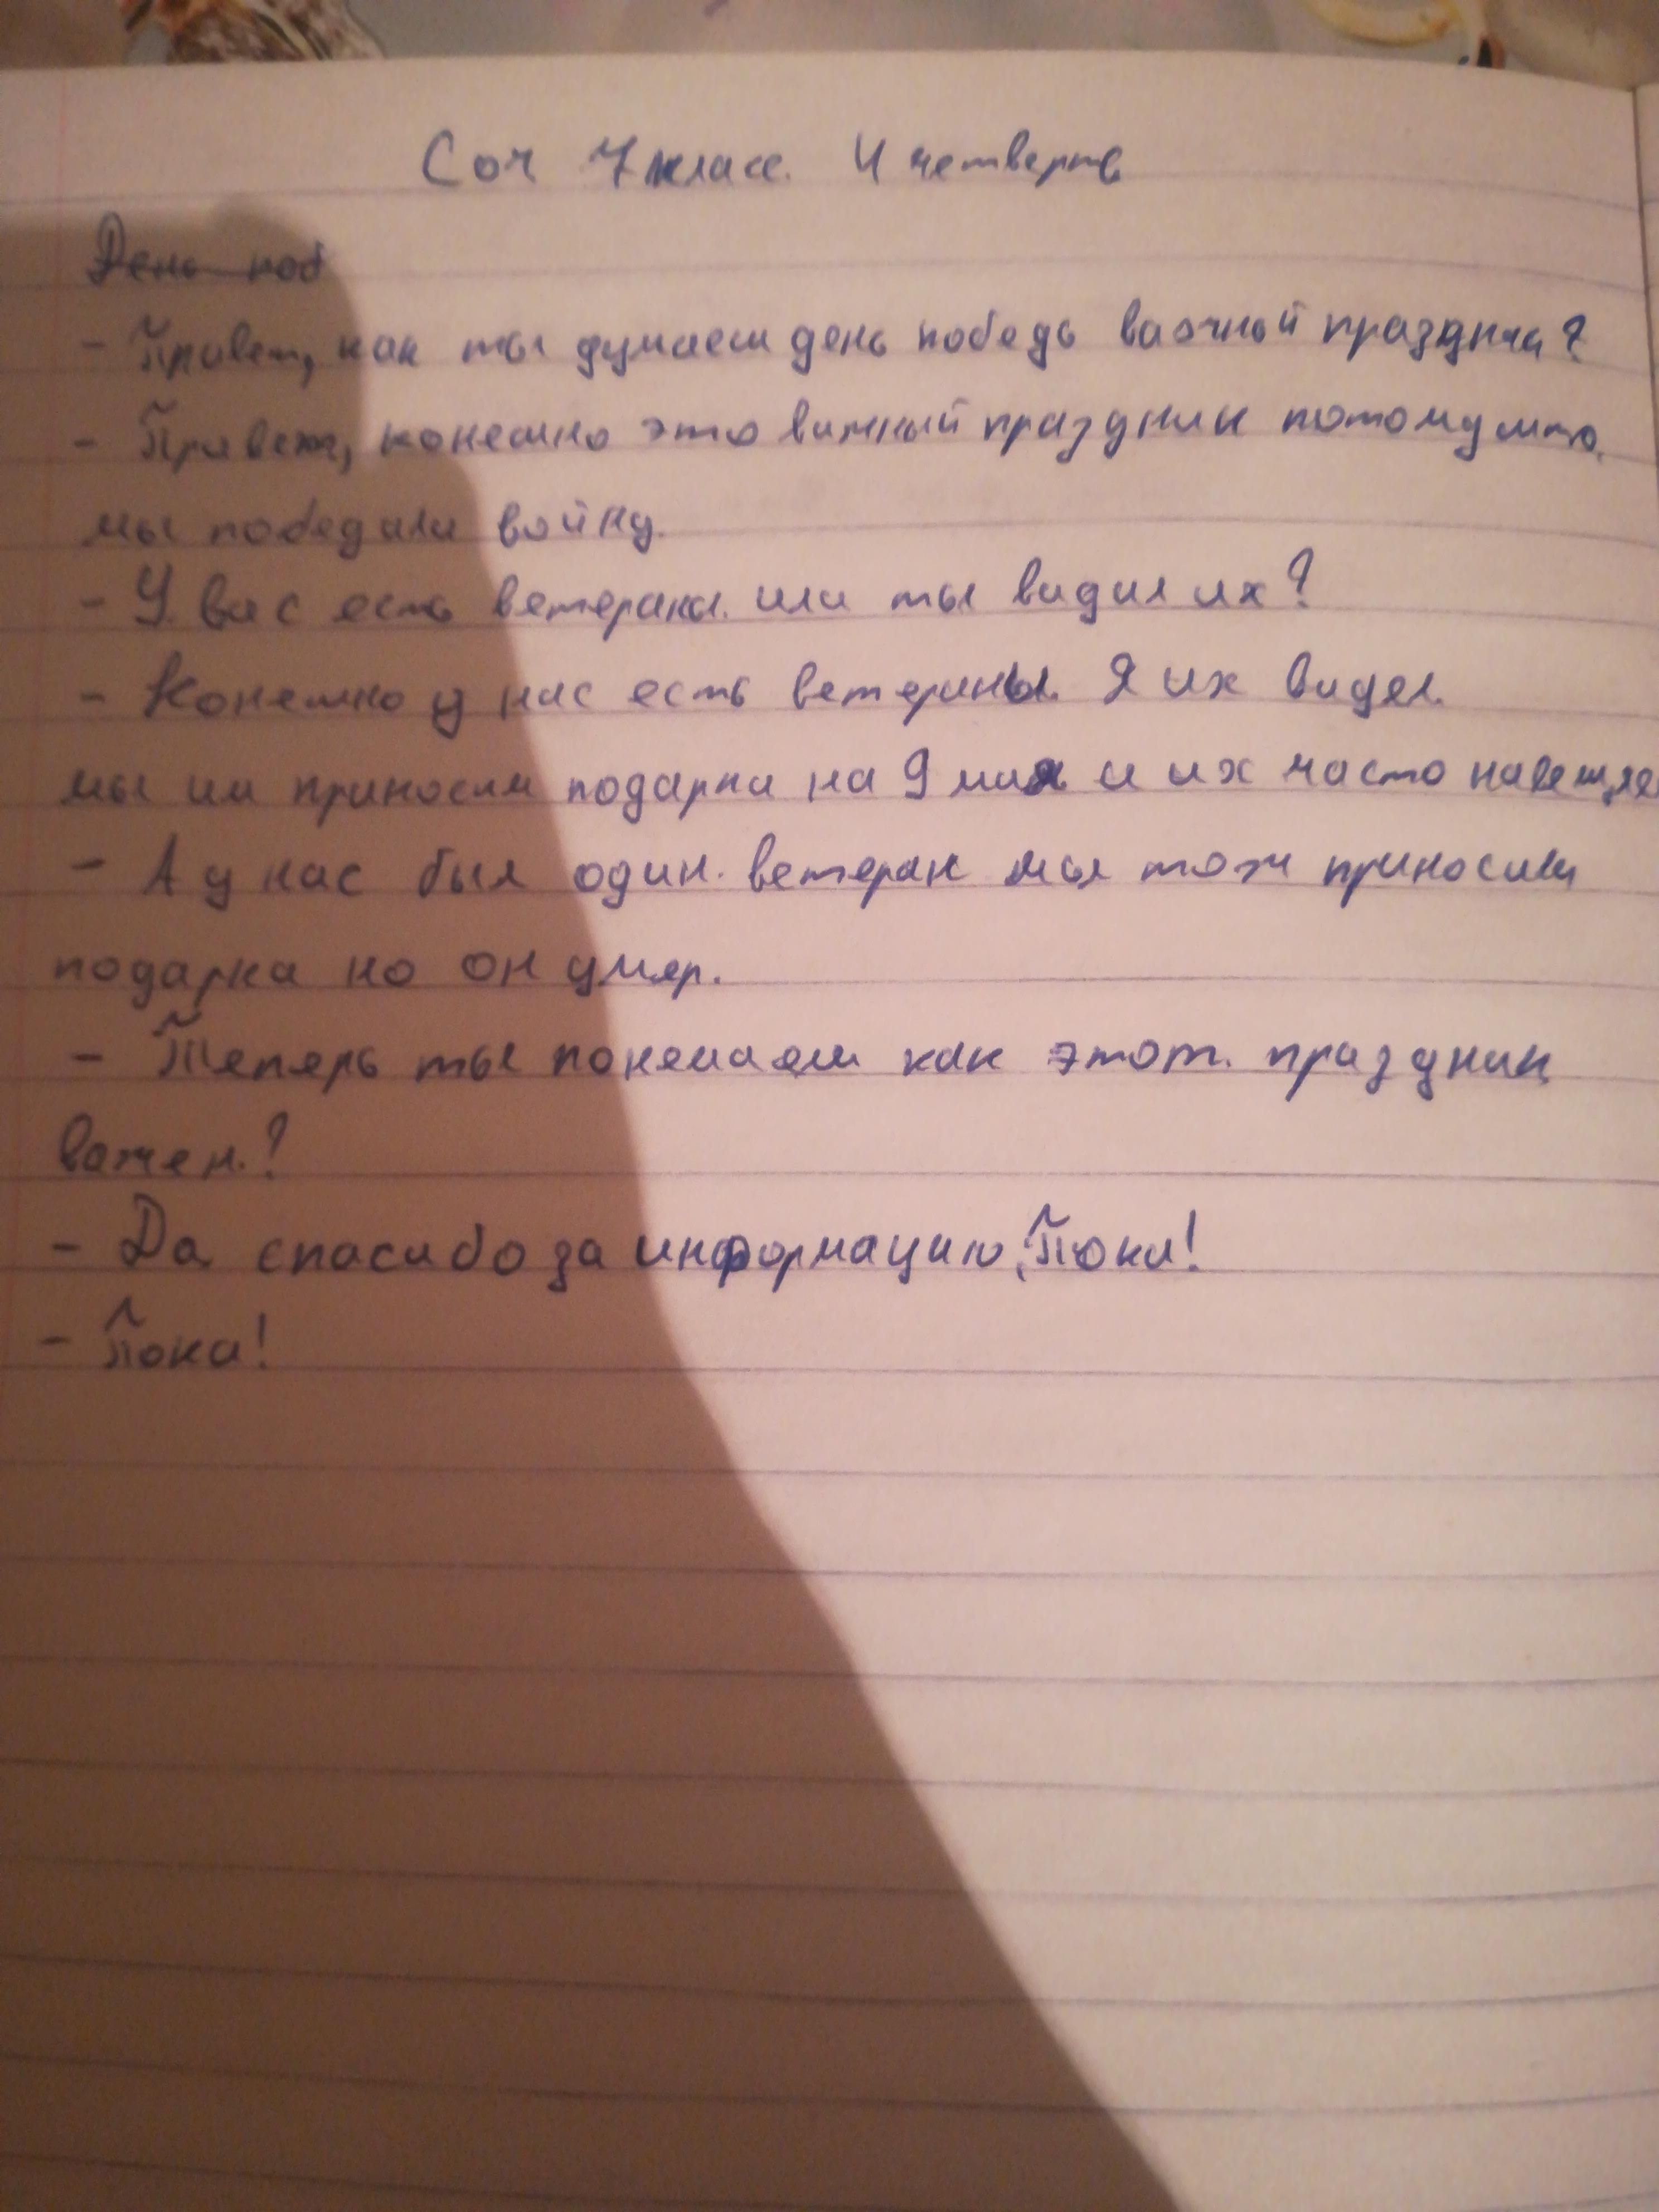 Соч 7 класс. 4 четверть
День поб
- Привет, как ты думаеш день победь важный праздник?
- Привет, конешно это важный праздник потому што
мы победили войну.
- У вас есть ветераны. или ты видил их?
- Конешно у нас есть ветераны. Я их видел.
мы им приносим подарки на 9 мая и их часто навещяе
- А у нас был один. ветеран мы тож приносили
подарка но он умяр.
- Тепярь ты понемаеш как этот. праздник
важен.?
- Да спасибо за информацию, Пока!
- Пока!